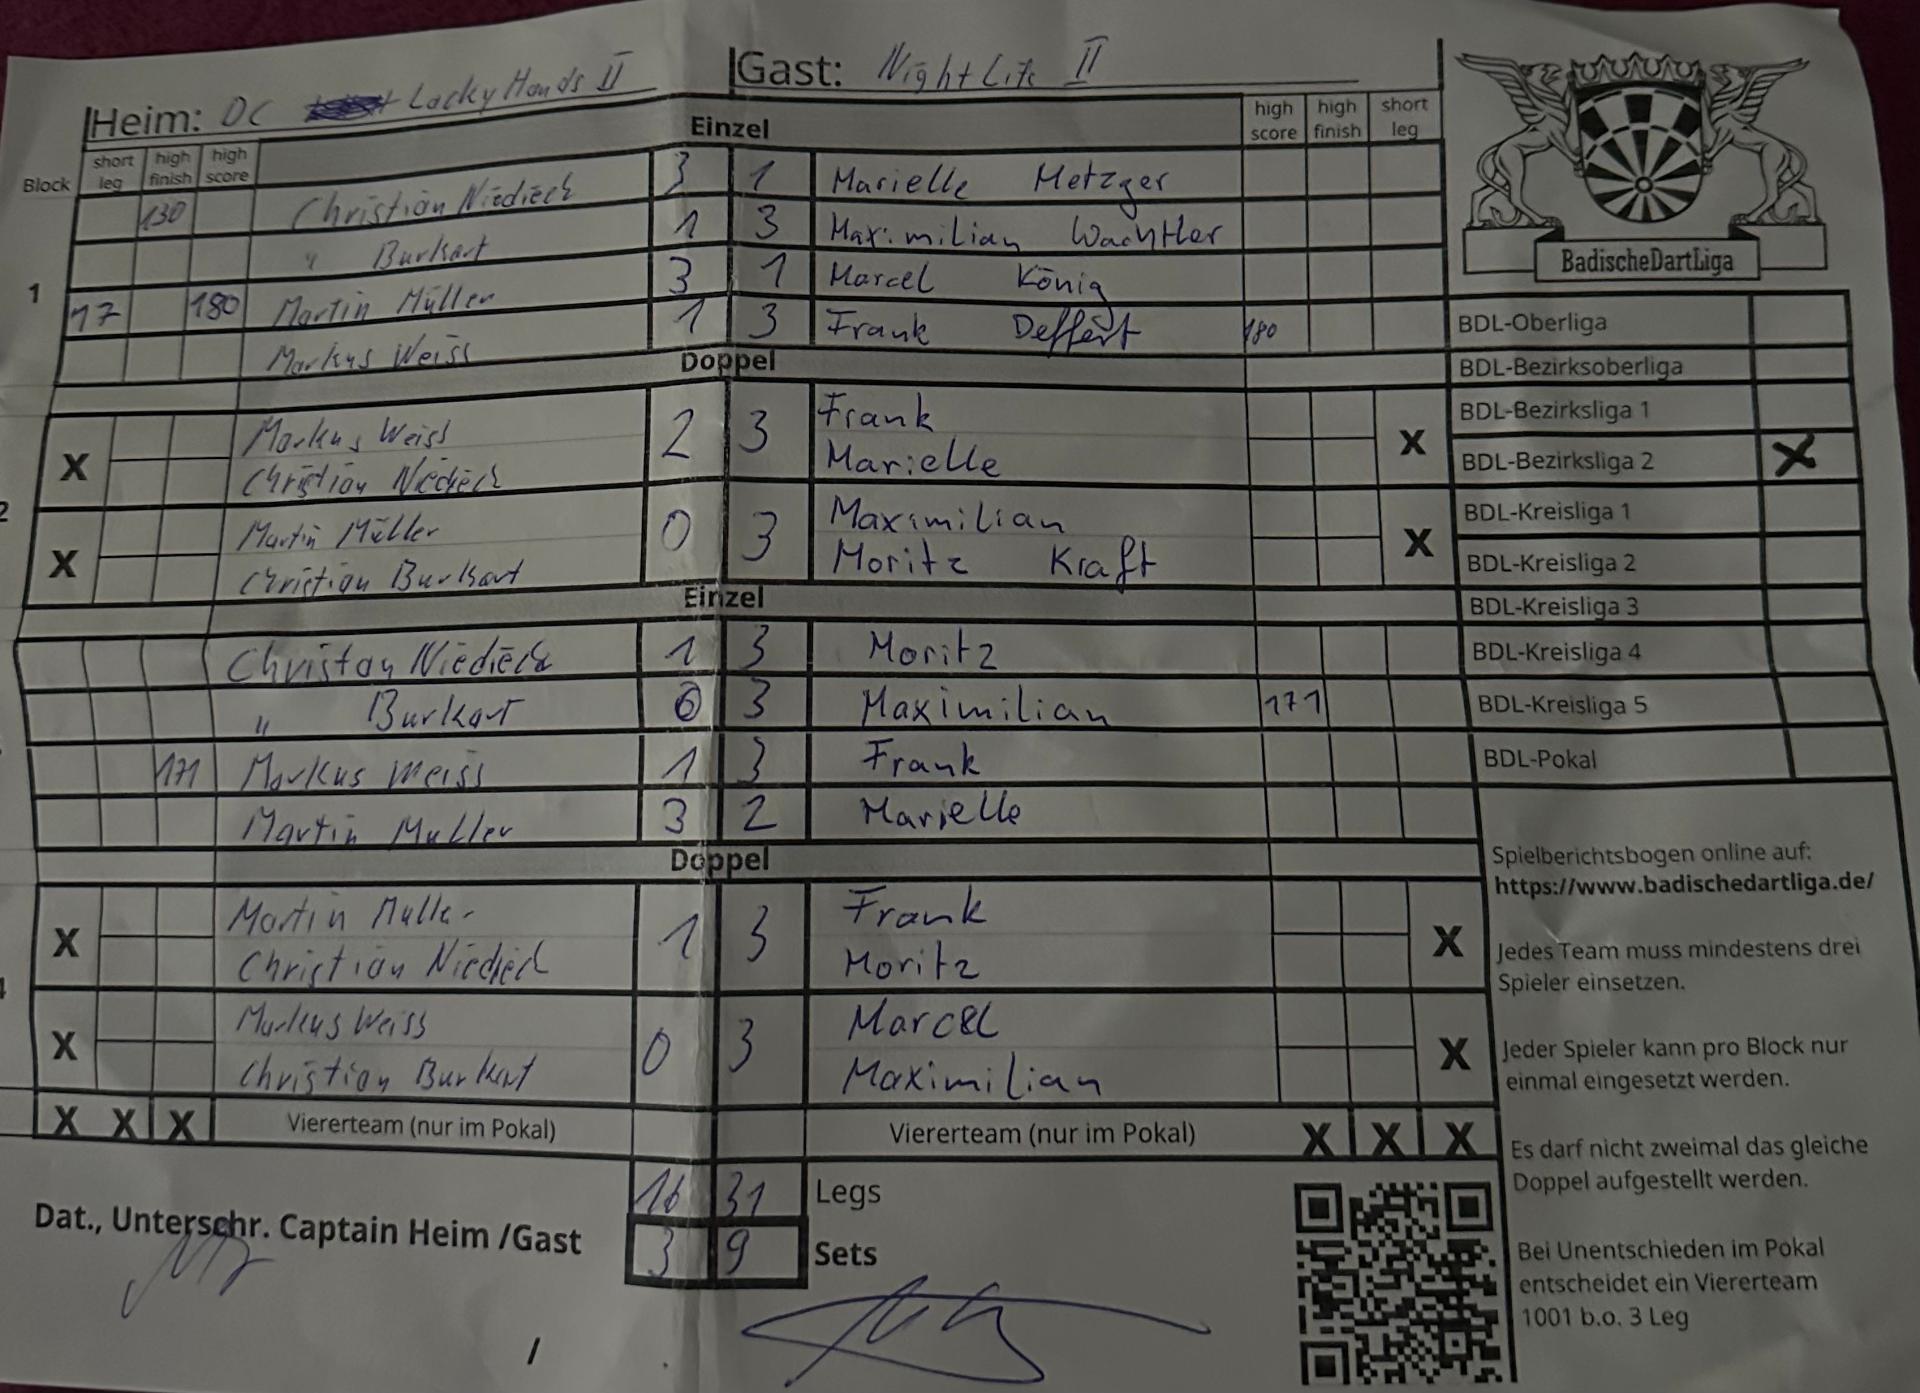 Heim: DC Lucky Hands II Gast: NightLife II
Einzel
Block short leg high finish high score high score high finish short leg
1
130 Christian Niedieck 3 1 Marielle Metzger
" Burkart 1 3 Maximilian Wachtler
17 180 Martin Müller 3 1 Marcel König
Markus Weiss 1 3 Frank Deffert 180
Doppel
2
X Markus Weiss 2 3 Frank X
Christian Niedieck Marielle
X Martin Müller 0 3 Maximilian X
Christian Burkart Moritz Kraft
Einzel
Christian Niedieck 1 3 Moritz
" Burkart 0 3 Maximilian 171
171 Markus Weiss 1 3 Frank
Martin Muller 3 2 Marielle
Doppel
X Martin Muller 1 3 Frank X
Christian Niedieck Moritz
4
X Markus Weiss 0 3 Marcel X
Christian Burkart Maximilian
X X X Viererteam (nur im Pokal) Viererteam (nur im Pokal) X X X
16 31 Legs
3 9 Sets
Dat., Unterschr. Captain Heim /Gast
/
BadischeDartLiga
BDL-Oberliga
BDL-Bezirksoberliga
BDL-Bezirksliga 1
BDL-Bezirksliga 2 X
BDL-Kreisliga 1
BDL-Kreisliga 2
BDL-Kreisliga 3
BDL-Kreisliga 4
BDL-Kreisliga 5
BDL-Pokal
Spielberichtsbogen online auf:
https://www.badischedartliga.de/
Jedes Team muss mindestens drei
Spieler einsetzen.
Jeder Spieler kann pro Block nur
einmal eingesetzt werden.
Es darf nicht zweimal das gleiche
Doppel aufgestellt werden.
Bei Unentschieden im Pokal
entscheidet ein Viererteam
1001 b.o. 3 Leg